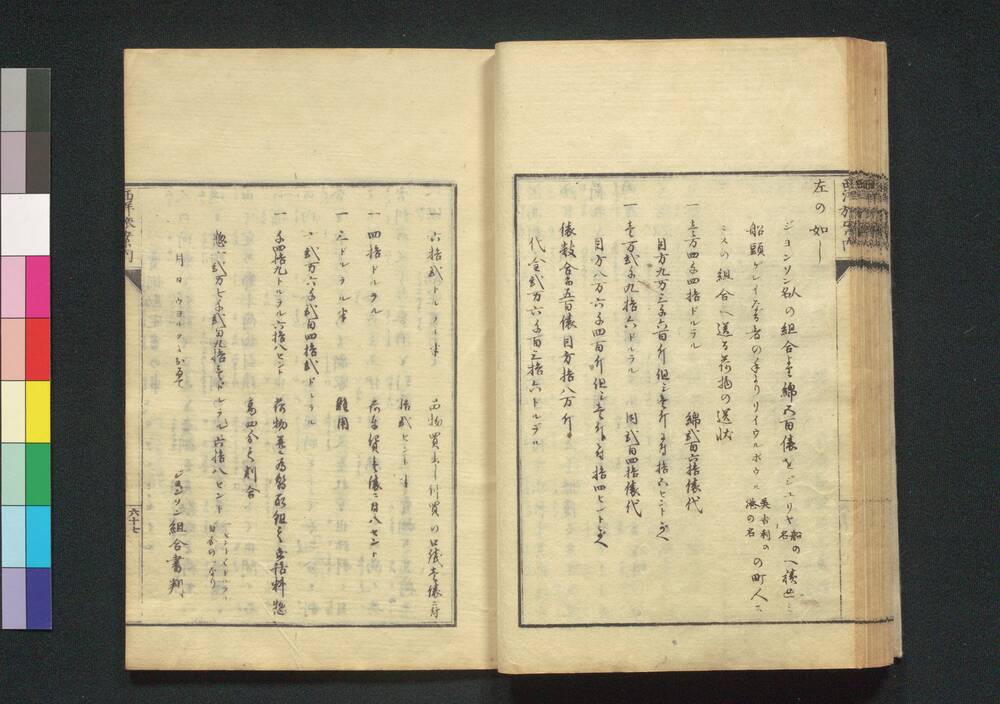 左の如し
ジヨンソン 人名 の組合より綿五百俵をジユリヤ 船の名 へ積込ミ
船頭ゲレイなる者の手よりリイウルポウル 英吉利の港の名 の町人ニ
ミスの組合へ送る荷物の送状
一 壱万四千四拾ドルラル 綿弐百六拾俵代
目方九万三千六百斤但シ壱斤ニ付拾五セントつゝ
一 壱万弐千九拾六ドルラル 同弐百四拾俵代
目方八万六千四百斤但シ壱斤ニ付拾四セントつゝ
俵数合而五百俵目方拾八万斤
代金弐万六千百三拾六ドルラル
一 六拾弐ドルラル半 右物買出し付買の口銭壱俵ニ付
拾弐セント半
一 四拾ドルラル 荷舟賃壱俵ニ付八セント
一 三ドルラル半 雑用
〆弐万六千弐百四拾弐ドルラル
千四拾九ドルラル六拾八セント 荷物並ニ為替取組之世話料惣
高四分之割合
惣〆弐万七千弐百九拾壱ドルラル六拾八セント
月 日
ジヨンソン組合書判
六十七